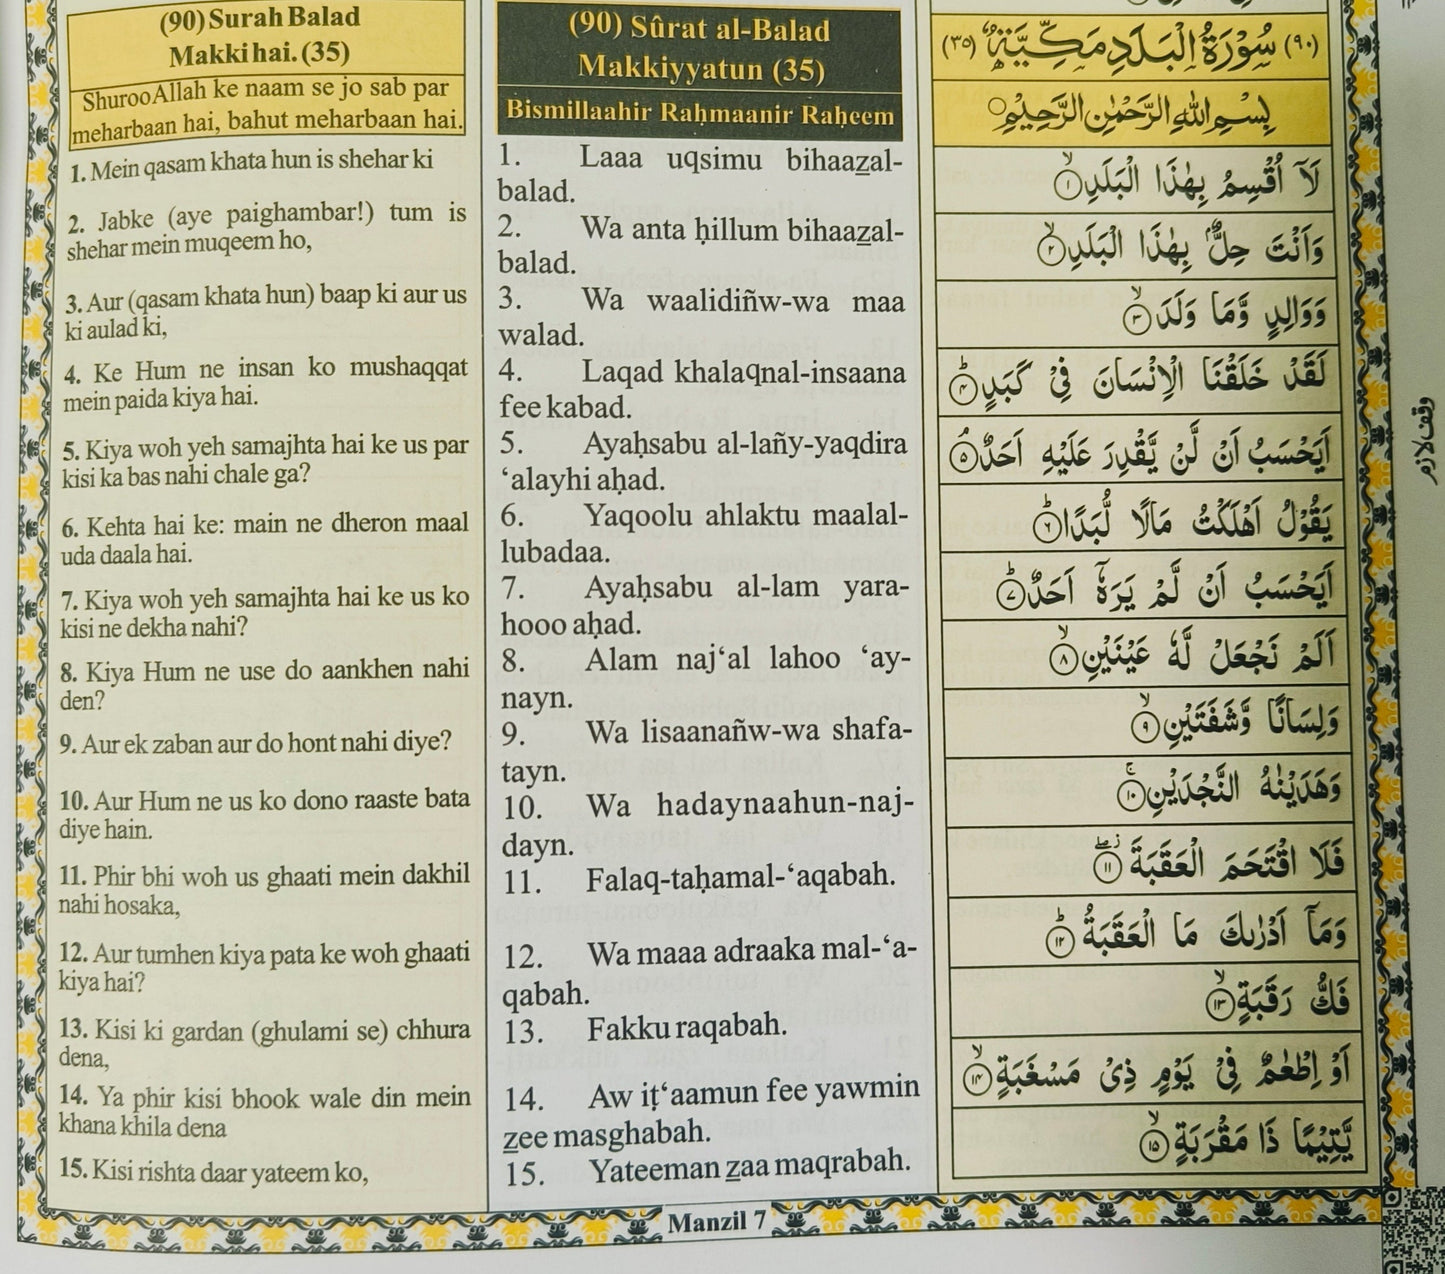 (90) Surah Balad
Makki hai. (35)
Shuroo Allah ke naam se jo sab par
meharbaan hai, bahut meharbaan hai.
1. Mein qasam khata hun is shehar ki
2. Jabke (aye paighambar!) tum is
shehar mein muqeem ho,
3. Aur (qasam khata hun) baap ki aur us
ki aulad ki,
4. Ke Hum ne insan ko mushaqqat
mein paida kiya hai.
5. Kiya woh yeh samajhta hai ke us par
kisi ka bas nahi chale ga?
6. Kehta hai ke: main ne dheron maal
uda daala hai.
7. Kiya woh yeh samajhta hai ke us ko
kisi ne dekha nahi?
8. Kiya Hum ne use do aankhen nahi
den?
9. Aur ek zaban aur do hont nahi diye?
10. Aur Hum ne us ko dono raaste bata
diye hain.
11. Phir bhi woh us ghaati mein dakhil
nahi hosaka,
12. Aur tumhen kiya pata ke woh ghaati
kiya hai?
13. Kisi ki gardan (ghulami se) chhura
dena,
14. Ya phir kisi bhook wale din mein
khana khila dena
15. Kisi rishta daar yateem ko,
(90) Sûrat al-Balad
Makkiyyatun (35)
Bismillaahir Raḥmaanir Raḥeem
1. Laaa uqsimu bihaazal-
balad.
2. Wa anta ḥillum bihaazal-
balad.
3. Wa waalidiñw-wa maa
walad.
4. Laqad khalaqnal-insaana
fee kabad.
5. Ayaḥsabu al-lañy-yaqdira
‘alayhi aḥad.
6. Yaqoolu ahlaktu maalal-
lubadaa.
7. Ayaḥsabu al-lam yara-
hooo aḥad.
8. Alam naj‘al lahoo ‘ay-
nayn.
9. Wa lisaanañw-wa shafa-
tayn.
10. Wa hadaynaahun-naj-
dayn.
11. Falaq-taḥamal-‘aqabah.
12. Wa maaa adraaka mal-‘a-
qabah.
13. Fakku raqabah.
14. Aw iṭ‘aamun fee yawmin
zee masghabah.
15. Yateeman zaa maqrabah.
(٩٠) سُوْرَةُ الْبَلَدِ مَكِّيَّةٌ (٣٥)
بِسْمِ اللّٰهِ الرَّحْمٰنِ الرَّحِيْمِ
لَآ اُقْسِمُ بِهٰذَا الْبَلَدِ ۙ١
وَاَنْتَ حِلٌّۢ بِهٰذَا الْبَلَدِ ۙ٢
وَوَالِدٍ وَّمَا وَلَدَ ۙ٣
لَقَدْ خَلَقْنَا الْاِنْسَانَ فِيْ كَبَدٍ ؕ٤
اَيَحْسَبُ اَنْ لَّنْ يَّقْدِرَ عَلَيْهِ اَحَدٌ ۘ٥
يَقُوْلُ اَهْلَكْتُ مَالًا لُّبَدًا ؕ٦
اَيَحْسَبُ اَنْ لَّمْ يَرَهٗٓ اَحَدٌ ؕ٧
اَلَمْ نَجْعَلْ لَّهٗ عَيْنَيْنِ ۙ٨
وَلِسَانًا وَّشَفَتَيْنِ ۙ٩
وَهَدَيْنٰهُ النَّجْدَيْنِ ۚ١٠
فَلَا اقْتَحَمَ الْعَقَبَةَ ١١
وَمَآ اَدْرٰىكَ مَا الْعَقَبَةُ ؕ١٢
فَكُّ رَقَبَةٍ ۙ١٣
اَوْ اِطْعٰمٌ فِيْ يَوْمٍ ذِيْ مَسْغَبَةٍ ۙ١٤
يَّتِيْمًا ذَا مَقْرَبَةٍ ۙ١٥
وقف لازم
Manzil 7